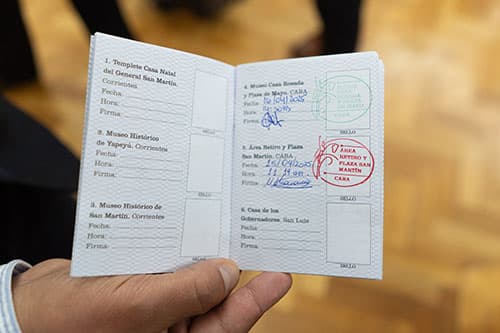 1. Templete Casa Natal
del General San Martín.
Corrientes
Fecha:
Hora:
Firma:
2. Museo Histórico
de Yapeyú. Corrientes
Fecha:
Hora:
Firma:
3. Museo Histórico de
San Martín. Corrientes
Fecha:
Hora:
Firma:
SELLO
SELLO
SELLO
4. Museo Casa Rosada
y Plaza de Mayo. CABA
Fecha:
Hora:
Firma:
SELLO
5. Área Retiro y Plaza
San Martín. CABA
Fecha: 15/04/2025
Hora: 11
Firma:
SELLO
ÁREA
RETIRO Y
PLAZA SAN
MARTÍN
CABA
6. Casa de los
Gobernadores. San Luis
Fecha:
Hora:
Firma:
SELLO